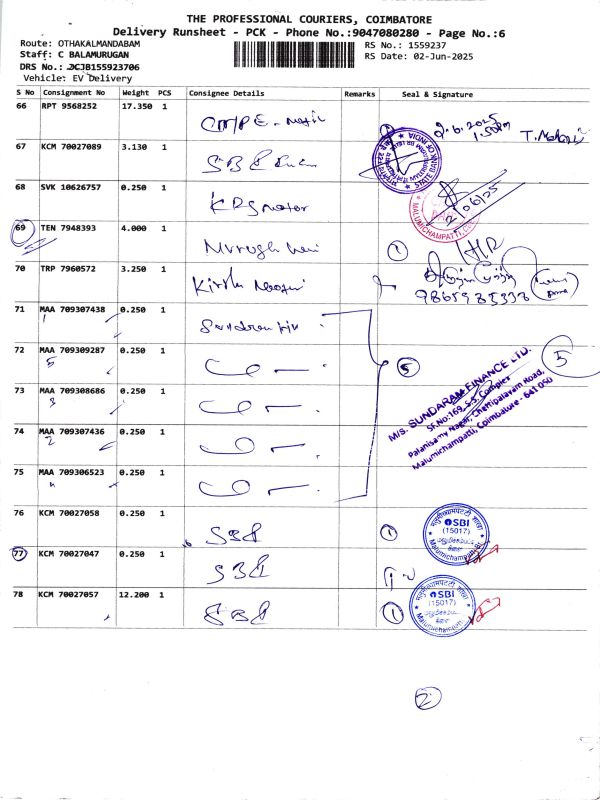 THE PROFESSIONAL COURIERS, COIMBATORE
Delivery Runsheet - PCK - Phone No.:9047080280 - Page No.:6
Route: OTHAKALMANDABAM
RS No.: 1559237
Staff: C BALAMURUGAN
RS Date: 02-Jun-2025
DRS No.: DCJB155923706
Vehicle: EV Delivery
S No Consignment No Weight PCS Consignee Details Remarks Seal & Signature
66 RPT 9568252 17.350 1
2.6.2025
1.50pm
67 KCM 70027089 3.130 1 SBI
STATE BANK OF INDIA
68 SVK 10626757 0.250 1 KPS motor
MALUMICHAMPATTI
2/06/25
69 TEN 7948393 4.000 1
1
70 TRP 7960572 3.250 1
9865935338
71 MAA 709307438 0.250 1 Sundaram fin
1
72 MAA 709309287 0.250 1
5
5
5
M/s. SUNDARAM FINANCE LTD.
SF.No:169, S.S. Complex
Palanisamy Nagar, Chettipalayam Road,
Malumichampatti, Coimbatore - 641 050
73 MAA 709308686 0.250 1
3
74 MAA 709307436 0.250 1
2
75 MAA 709306523 0.250 1
76 KCM 70027058 0.250 1 SBI
1
SBI
(15017)
Malumichampatti
77 KCM 70027047 0.250 1 SBI
78 KCM 70027057 12.200 1 SBI
1
SBI
(15017)
Malumichampatti
2